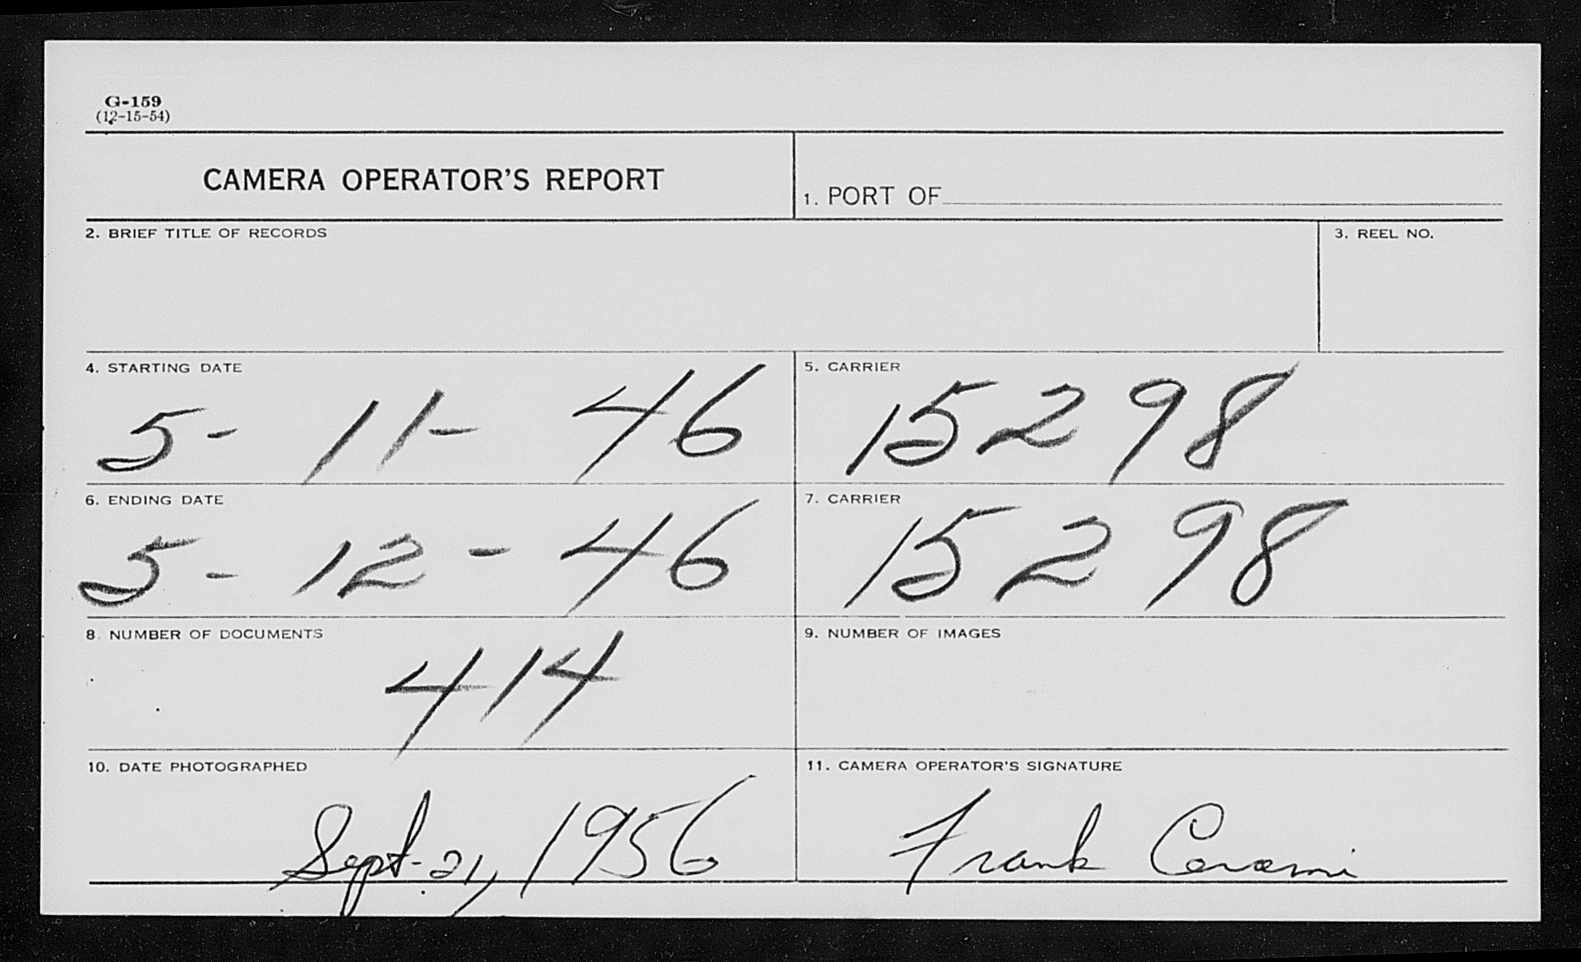 G-159
(12-15-54)
CAMERA OPERATOR'S REPORT
1. PORT OF
2. BRIEF TITLE OF RECORDS
3. REEL NO.
4. STARTING DATE
5-11-46
5. CARRIER
15298
6. ENDING DATE
5-12-46
7. CARRIER
15298
8. NUMBER OF DOCUMENTS
414
9. NUMBER OF IMAGES
10. DATE PHOTOGRAPHED
Sept. 21, 1956
11. CAMERA OPERATOR'S SIGNATURE
Frank